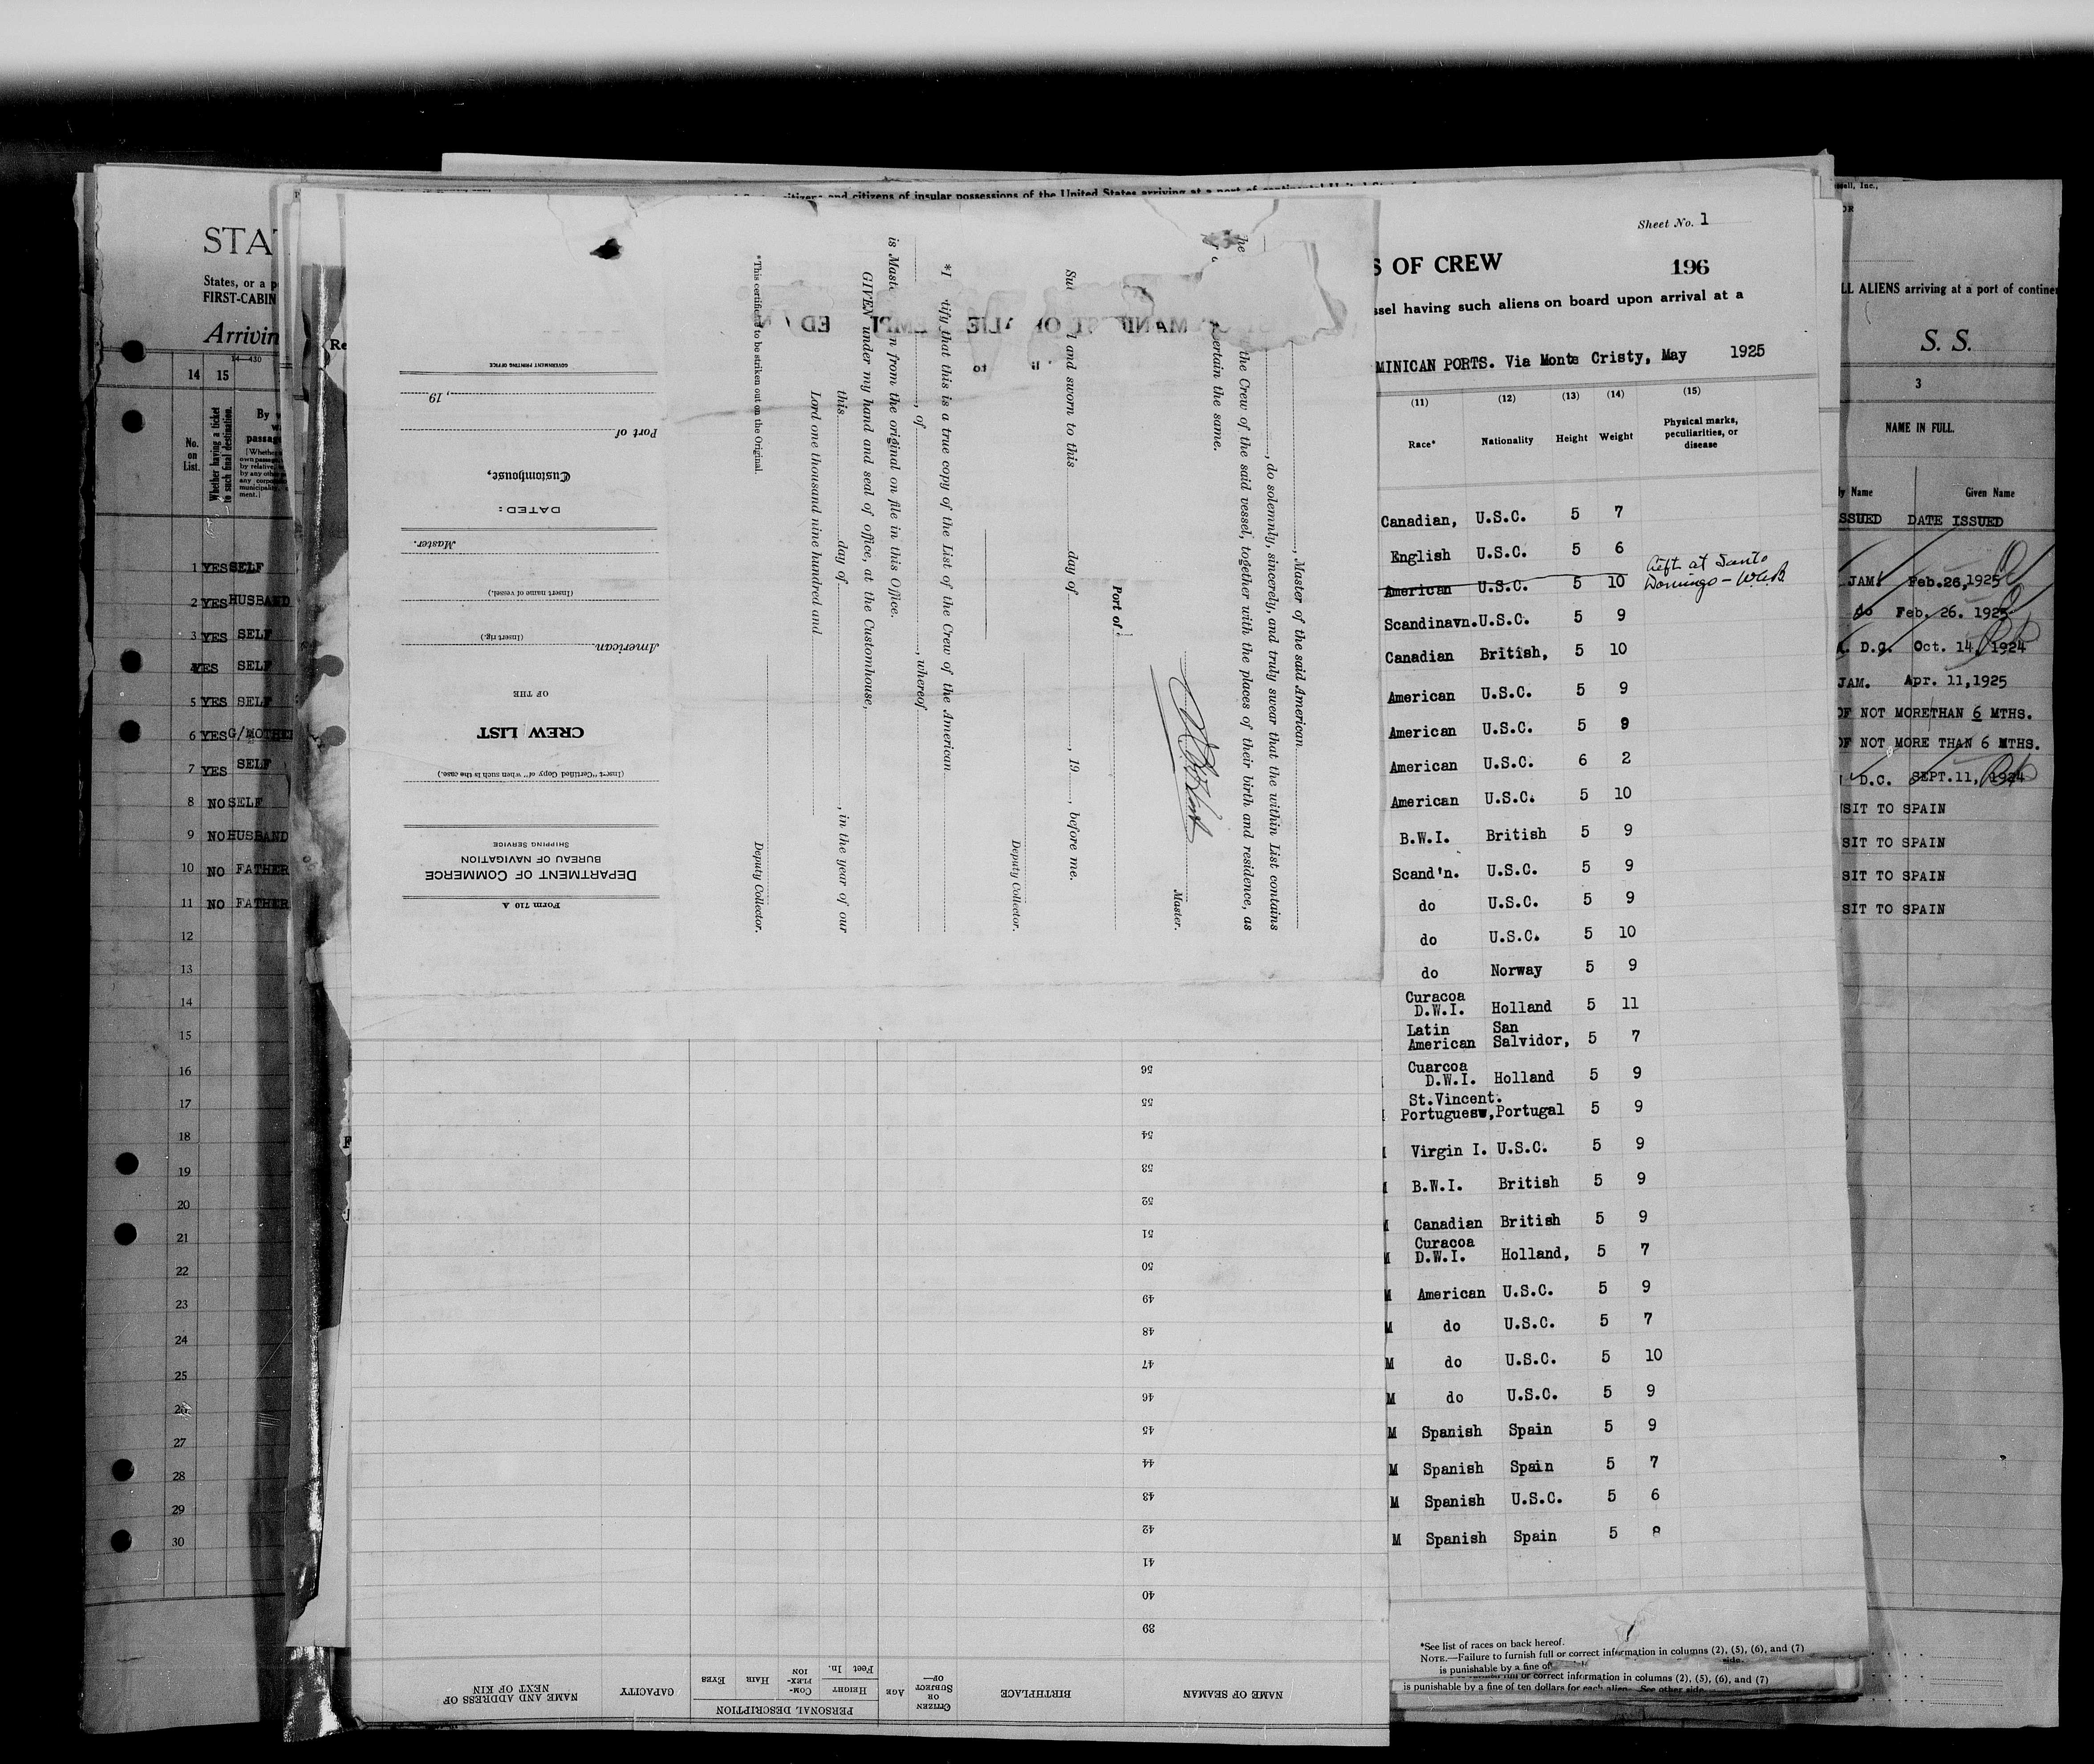 STAT
States, or a p
FIRST-CABIN
Arrivin
14—430
14 15
No. on List.
Whether having a ticket to such final destination.
By w
passage
[Whether
own passage,
by relative,
by any other
any corpor
municipality,
ment.]
1 YES SELF
2 YES HUSBAND
3 YES SELF
4 YES SELF
5 YES SELF
6 YES G/MOTHER
7 YES SELF
8 NO SELF
9 NO HUSBAND
10 NO FATHER
11 NO FATHER
12
13
14
15
16
17
18
19
20
21
22
23
24
25
26
27
28
29
30
Re
citizens and citizens of insular possessions of the United States arriving at a port of continental United States
Form 710 A
DEPARTMENT OF COMMERCE
BUREAU OF NAVIGATION
SHIPPING SERVICE
(Insert "Certified Copy of" when such is the case.)
CREW LIST
OF THE
American
(Insert rig.)
(Insert name of vessel.)
Master.
DATED:
Customhouse,
Port of
, 19
GOVERNMENT PRINTING OFFICE
, Master of the said American
, do solemnly, sincerely, and truly swear that the within List contains
the Crew of the said vessel, together with the places of their birth and residence, as
ertain the same.
Master.
Port of
and sworn to this day of , 19 , before me.
Deputy Collector.
*I tify that this is a true copy of the List of the Crew of the American
, of , whereof
is Maste n from the original on file in this Office.
GIVEN under my hand and seal of office, at the Customhouse,
this day of , in the year of our
Lord one thousand nine hundred and
Deputy Collector.
*This certificate to be striken out on the Original.
NAME OF SEAMAN
BIRTHPLACE
CITIZEN OR SUBJECT OF—
AGE
PERSONAL DESCRIPTION
HEIGHT
Feet In.
COM-PLEX-ION
HAIR
EYES
CAPACITY
NAME AND ADDRESS OF NEXT OF KIN
39
40
41
42
43
44
45
46
47
48
49
50
51
52
53
54
55
56
Sheet No. 1
S OF CREW
196
ssel having such aliens on board upon arrival at a
MINICAN PORTS. Via Monte Cristy, May 1925
(11) (12) (13) (14) (15)
Race* Nationality Height Weight Physical marks, peculiarities, or disease
Canadian, U.S.C. 5 7
English U.S.C. 5 6
American U.S.C. 5 10 Left at Santo
Domingo - W.C.B
Scandinavn. U.S.C. 5 9
Canadian British, 5 10
American U.S.C. 5 9
American U.S.C. 5 9
American U.S.C. 6 2
American U.S.C. 5 10
B.W.I. British 5 9
Scand'n. U.S.C. 5 9
do U.S.C. 5 9
do U.S.C. 5 10
do Norway 5 9
Curacoa
D.W.I. Holland 5 11
Latin San
American Salvidor, 5 7
Cuarcoa
D.W.I. Holland 5 9
St.Vincent.
Portuguesw, Portugal 5 9
Virgin I. U.S.C. 5 9
B.W.I. British 5 9
Canadian British 5 9
Curacoa
M D.W.I. Holland, 5 7
M American U.S.C. 5 9
M do U.S.C. 5 7
M do U.S.C. 5 10
M do U.S.C. 5 9
M Spanish Spain 5 9
M Spanish Spain 5 7
M Spanish U.S.C. 5 6
M Spanish Spain 5 8
*See list of races on back hereof.
NOTE.—Failure to furnish full or correct information in columns (2), (5), (6), and (7)
is punishable by a fine of
side.
full or correct information in columns (2), (5), (6), and (7)
is punishable by a fine of ten dollars for each alien. See other side.
ssell, Inc.,
OR
LL ALIENS arriving at a port of continen
S. S.
3
NAME IN FULL.
ly Name Given Name
SSUED DATE ISSUED
JAM. Feb.26,1925
do Feb. 26. 1925
D.C. Oct. 14, 1924
JAM. Apr. 11,1925
OF NOT MORETHAN 6 MTHS.
OF NOT MORE THAN 6 MTHS.
D.C. SEPT.11, 1924
SIT TO SPAIN
SIT TO SPAIN
SIT TO SPAIN
SIT TO SPAIN